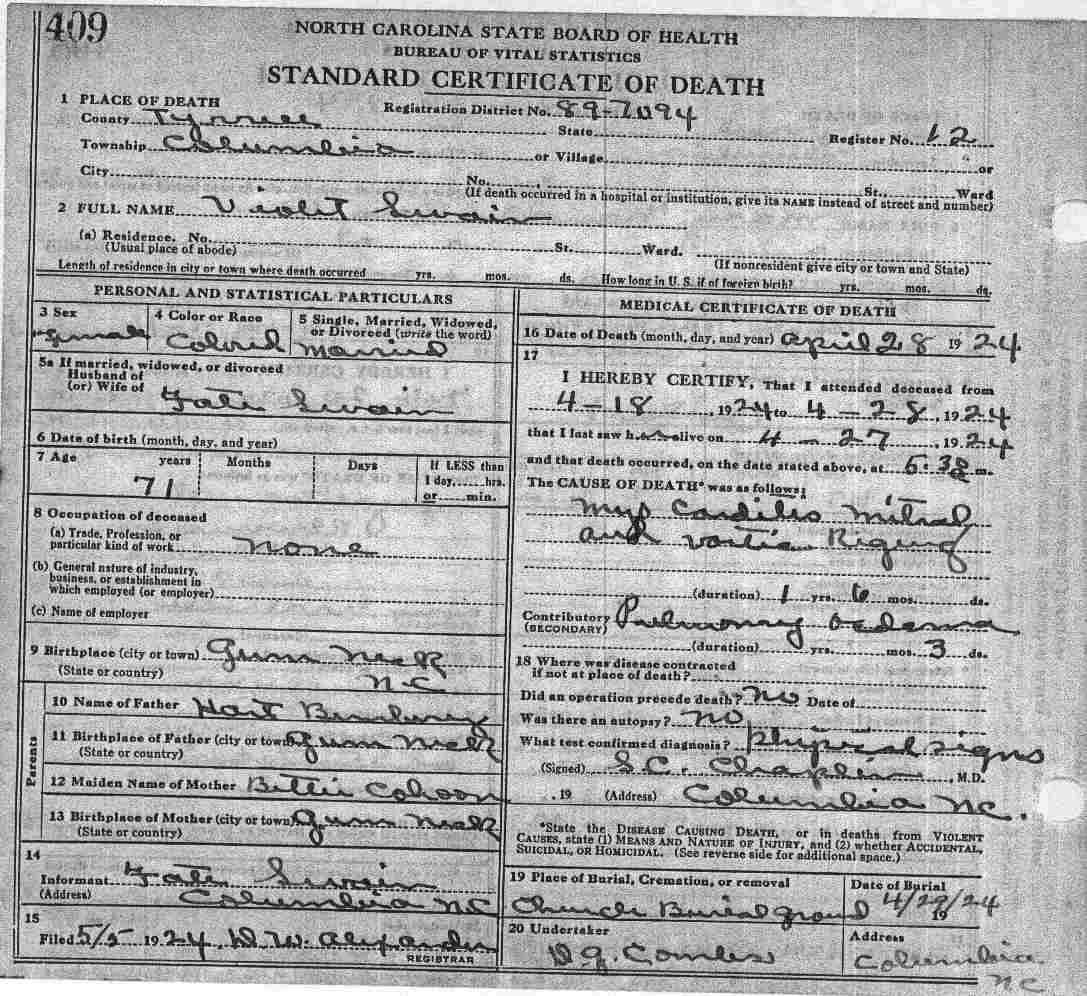 409
NORTH CAROLINA STATE BOARD OF HEALTH
BUREAU OF VITAL STATISTICS
STANDARD CERTIFICATE OF DEATH
1 PLACE OF DEATH Registration District No. 89-7094
County Tyrrell State Register No. 12
Township Columbia or Village or
City No. St. Ward
(If death occurred in a hospital or institution, give its NAME instead of street and number)
2 FULL NAME Violet Swain
(a) Residence. No. St. Ward.
(Usual place of abode) (If nonresident give city or town and State)
Length of residence in city or town where death occurred yrs. mos. ds. How long in U. S. if of foreign birth? yrs. mos. ds.
PERSONAL AND STATISTICAL PARTICULARS
3 Sex 4 Color or Race 5 Single, Married, Widowed,
or Divorced (write the word)
Female Colored Married
5a If married, widowed, or divorced
Husband of
(or) Wife of Swain
6 Date of birth (month, day, and year)
7 Age years Months Days If LESS than
1 day, hrs.
71 or min.
8 Occupation of deceased
(a) Trade, Profession, or
particular kind of work none
(b) General nature of industry,
business, or establishment in
which employed (or employer)
(c) Name of employer
9 Birthplace (city or town) Gum Neck
(State or country) NC
Parents
10 Name of Father Hart
11 Birthplace of Father (city or town) Gum Neck
(State or country)
12 Maiden Name of Mother Bettie Cohoon
13 Birthplace of Mother (city or town) Gum Neck
(State or country)
14
Informant Swain
(Address) Columbia NC
15
Filed 5/5 1924, D.W. Alexander
REGISTRAR
MEDICAL CERTIFICATE OF DEATH
16 Date of Death (month, day, and year) April 28 1924
17
I HEREBY CERTIFY, That I attended deceased from
4-18, 1924 to 4-28, 1924
that I last saw her alive on 4-27, 1924
and that death occurred, on the date stated above, at 5:30 m.
The CAUSE OF DEATH* was as follows:
Mitral
and
(duration) 1 yrs. 6 mos. ds.
Contributory Pulmonary oedema
(SECONDARY)
(duration) yrs. mos. 3 ds.
18 Where was disease contracted
if not at place of death?
Did an operation precede death? no Date of
Was there an autopsy? no
What test confirmed diagnosis? Physical signs
(Signed) S.C. Chaplin, M.D.
, 19 (Address) Columbia NC.
*State the DISEASE CAUSING DEATH, or in deaths from VIOLENT
CAUSES, state (1) MEANS AND NATURE OF INJURY, and (2) whether ACCIDENTAL,
SUICIDAL, OR HOMICIDAL. (See reverse side for additional space.)
19 Place of Burial, Cremation, or removal Date of Burial
Church Burial ground 4/29/24
19
20 Undertaker Address
Combs Columbia
NC